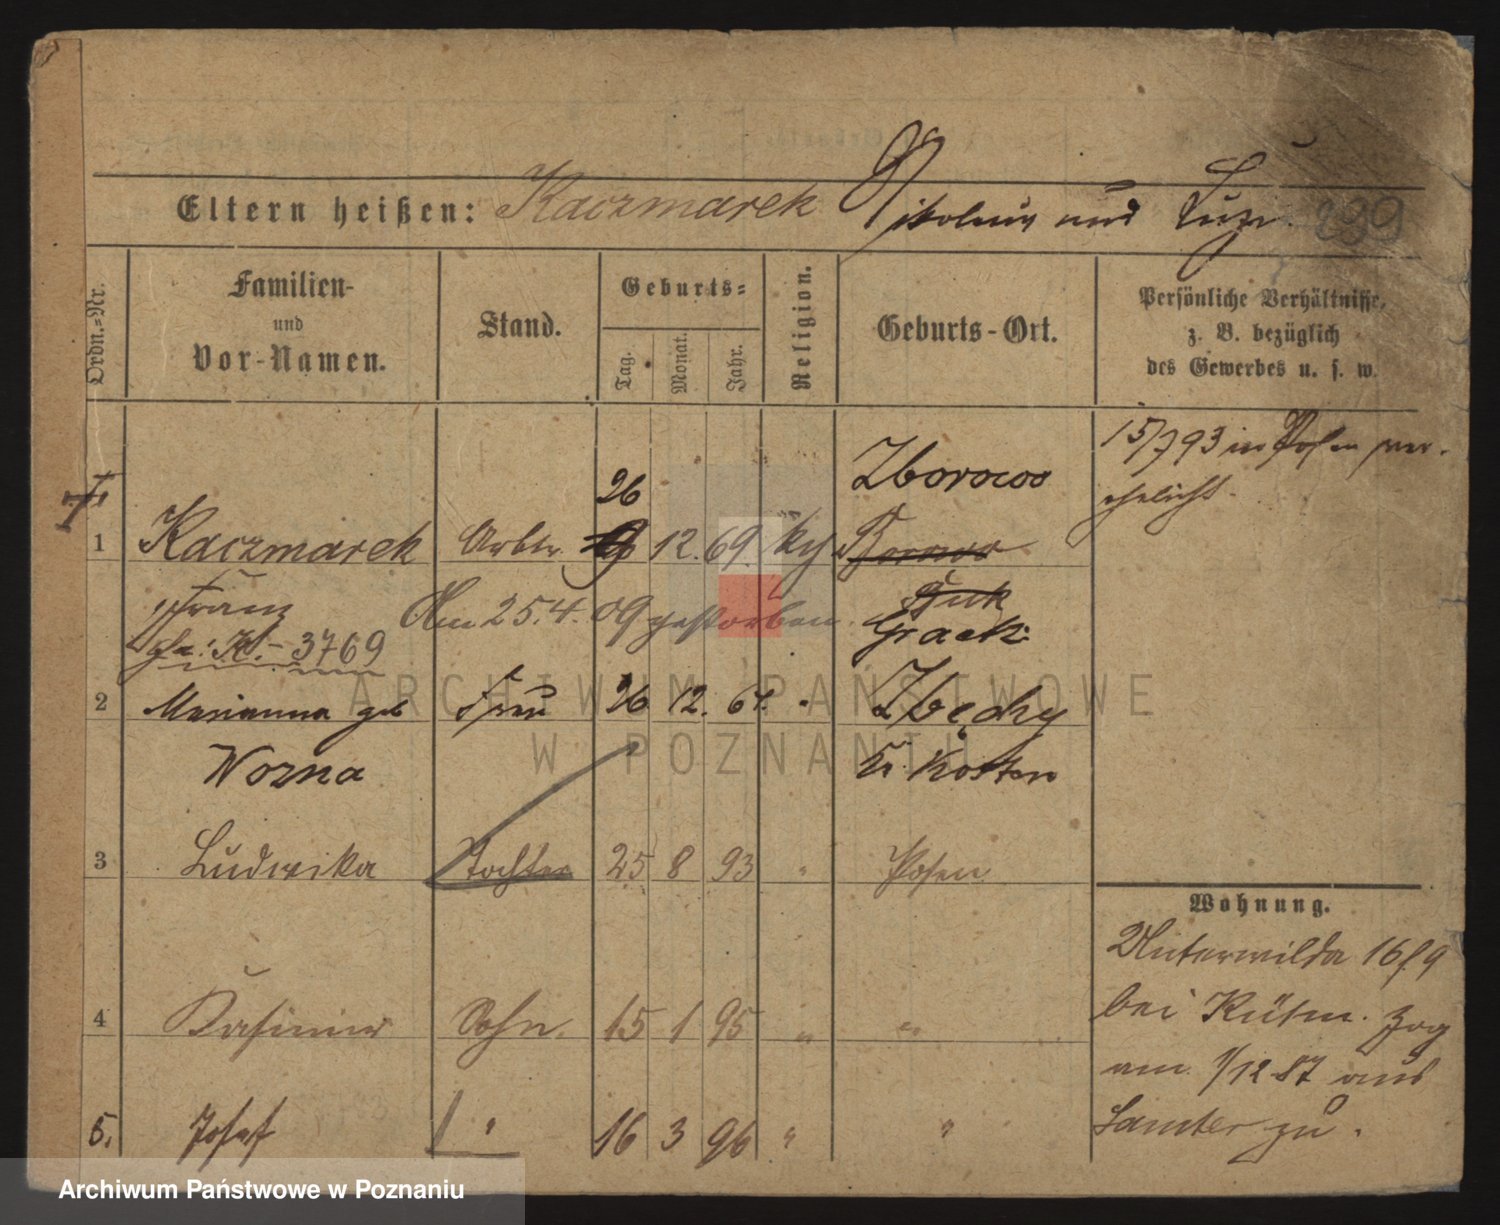 Eltern heißen: Kaczmarek Nikolaus und Luzie. 299
Ordn.-Nr.
Familien-
und
Vor-Namen.
Stand.
Geburts-
Tag.
Monat.
Jahr.
Religion.
Geburts-Ort.
Persönliche Verhältnisse,
z. B. bezüglich
des Gewerbes u. s. w.
15/7 93 in Posen ver-
ehelicht.
26
Zborowo
1 Kaczmarek Arbtr. 9 12. 69. kth Borowo
Franz Am 25.4.09 gestorben.
Buk
Graetz
gl: K. - 3769
2 Marianna geb Frau 26 12. 67. " Zbęchy
Wozna Kr. Kosten
3 Ludwika Tochter 25 8 93 " Posen
Wohnung.
Unterwilda 16/9
bei Rühm. zog
am 1/12 87 aus
Samter zu.
4 Kasimir Sohn. 15 1 95 " "
5. Josef " 16 3 96 " "
ARCHIWUM PAŃSTWOWE
W POZNANIU
Archiwum Państwowe w Poznaniu